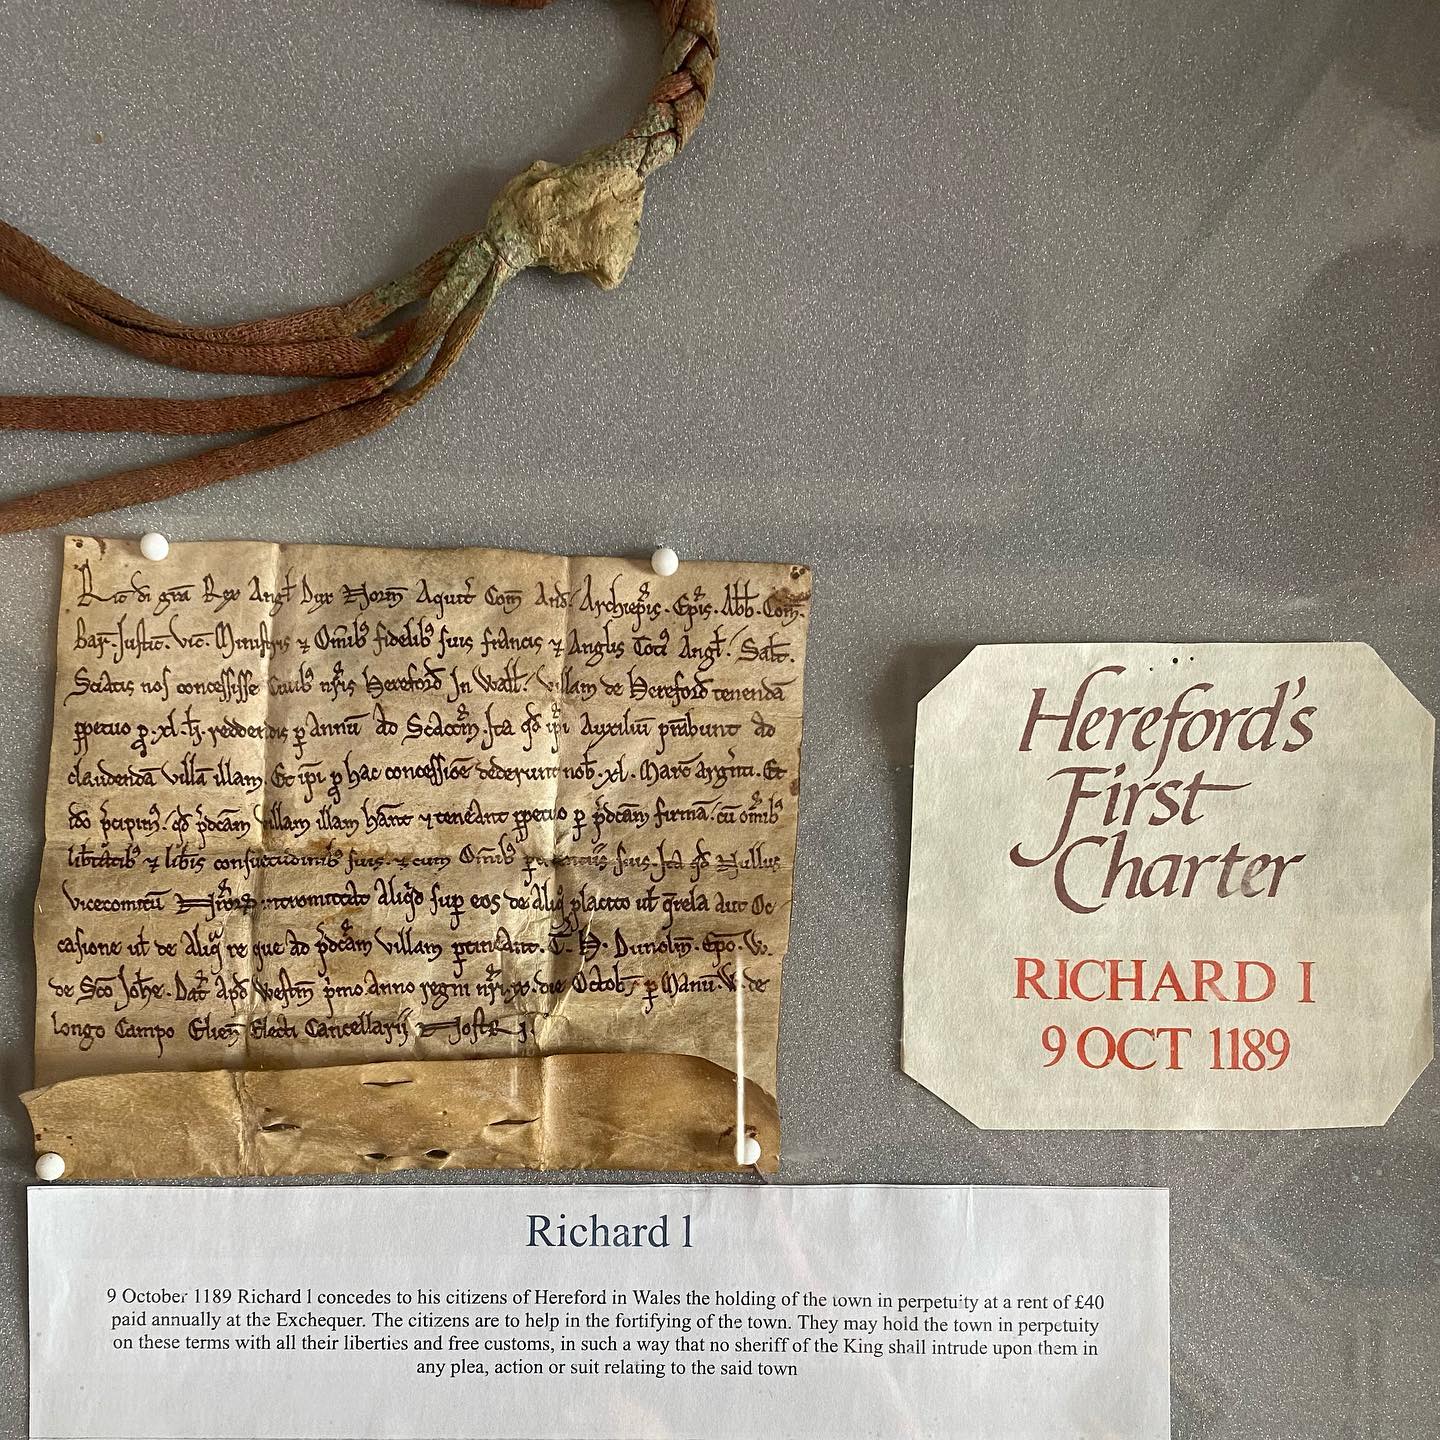 Ric̄ di gr̄a Rex Angl̄ Dux Norm̄ Aquit̄ Com̄ And̄ Archiep̄is. Ep̄is. Abb̄. Com̄.
bar̄. Justic̄. vic̄. Ministris ⁊ Om̄ib⁹ fidelib⁹ suis francis ⁊ Anglis Toci⁹ Angl̄. Sal̄t.
Sciatis nos concessisse Ciuib⁹ nr̄is Hereford̄ In Wall̄. villam de Hereford̄ tenendā
p̱petuo p̱ .xl. lī. reddendis p̱ annū ad Scaccm̄. Ita qd̄ ip̄i Auxiliū pr̄abunt ad
claudendā villā illam. Et ip̄i p̱ hac concessiōe dederunt nob̄ .xl. Marc̄ arḡnti. Et
id̄o p̄cipim⁹. qd̄ p̄dc̄am villam illam hān̄t ⁊ teneant p̱petuo p̱ p̄dc̄am firmā. cū om̄ib⁹
lib̄tatib⁹ ⁊ lib̄is consuetudinib⁹ suis. ⁊ cum Om̄ib⁹ suis. Ita qd̄ Nullus
vicecomitū intromittat Aliq̄d sup̱ eos de aliq̄ placito ul̄ q̄rela aut Oc
casione ul̄ de Aliq̄ re que ad p̄dc̄am villam p̱tineant. T. H. Dunolm̄. Ep̄o. W.
de Sc̄o Joh̄e. Dat̄ Apd̄ Westm̄ p̄mo anno regni nr̄i die Octob̄ p̱ Manū. W. de
longo Campo Elien̄ Electi Cancellarij
Hereford's
First
Charter
RICHARD I
9 OCT 1189
Richard l
9 October 1189 Richard l concedes to his citizens of Hereford in Wales the holding of the town in perpetuity at a rent of £40
paid annually at the Exchequer. The citizens are to help in the fortifying of the town. They may hold the town in perpetuity
on these terms with all their liberties and free customs, in such a way that no sheriff of the King shall intrude upon them in
any plea, action or suit relating to the said town